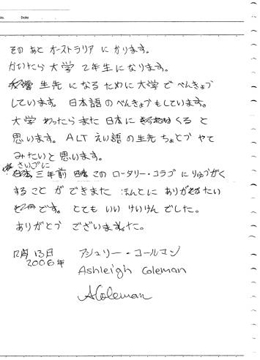 その あと オーストラリア に かります。
かいたら 大学 2年生に なります。
生先 に なる ために 大学 で べんきょう
しています。 日本語の べんきょうもしています。
大学 おわったら また 日本に くる と
思います。 ALT えい語の 生先 ちょと やて
みたいと 思います。
さいごに
三年前 この ロータリー・クラブ に りゅうがく
する ことが できました。 ほんとに ありがたい
です。 とても いい けいけん でした。
ありがとう ございました。
12月13日 アシュリー・コールマン
2006年 Ashleigh Coleman
AColeman